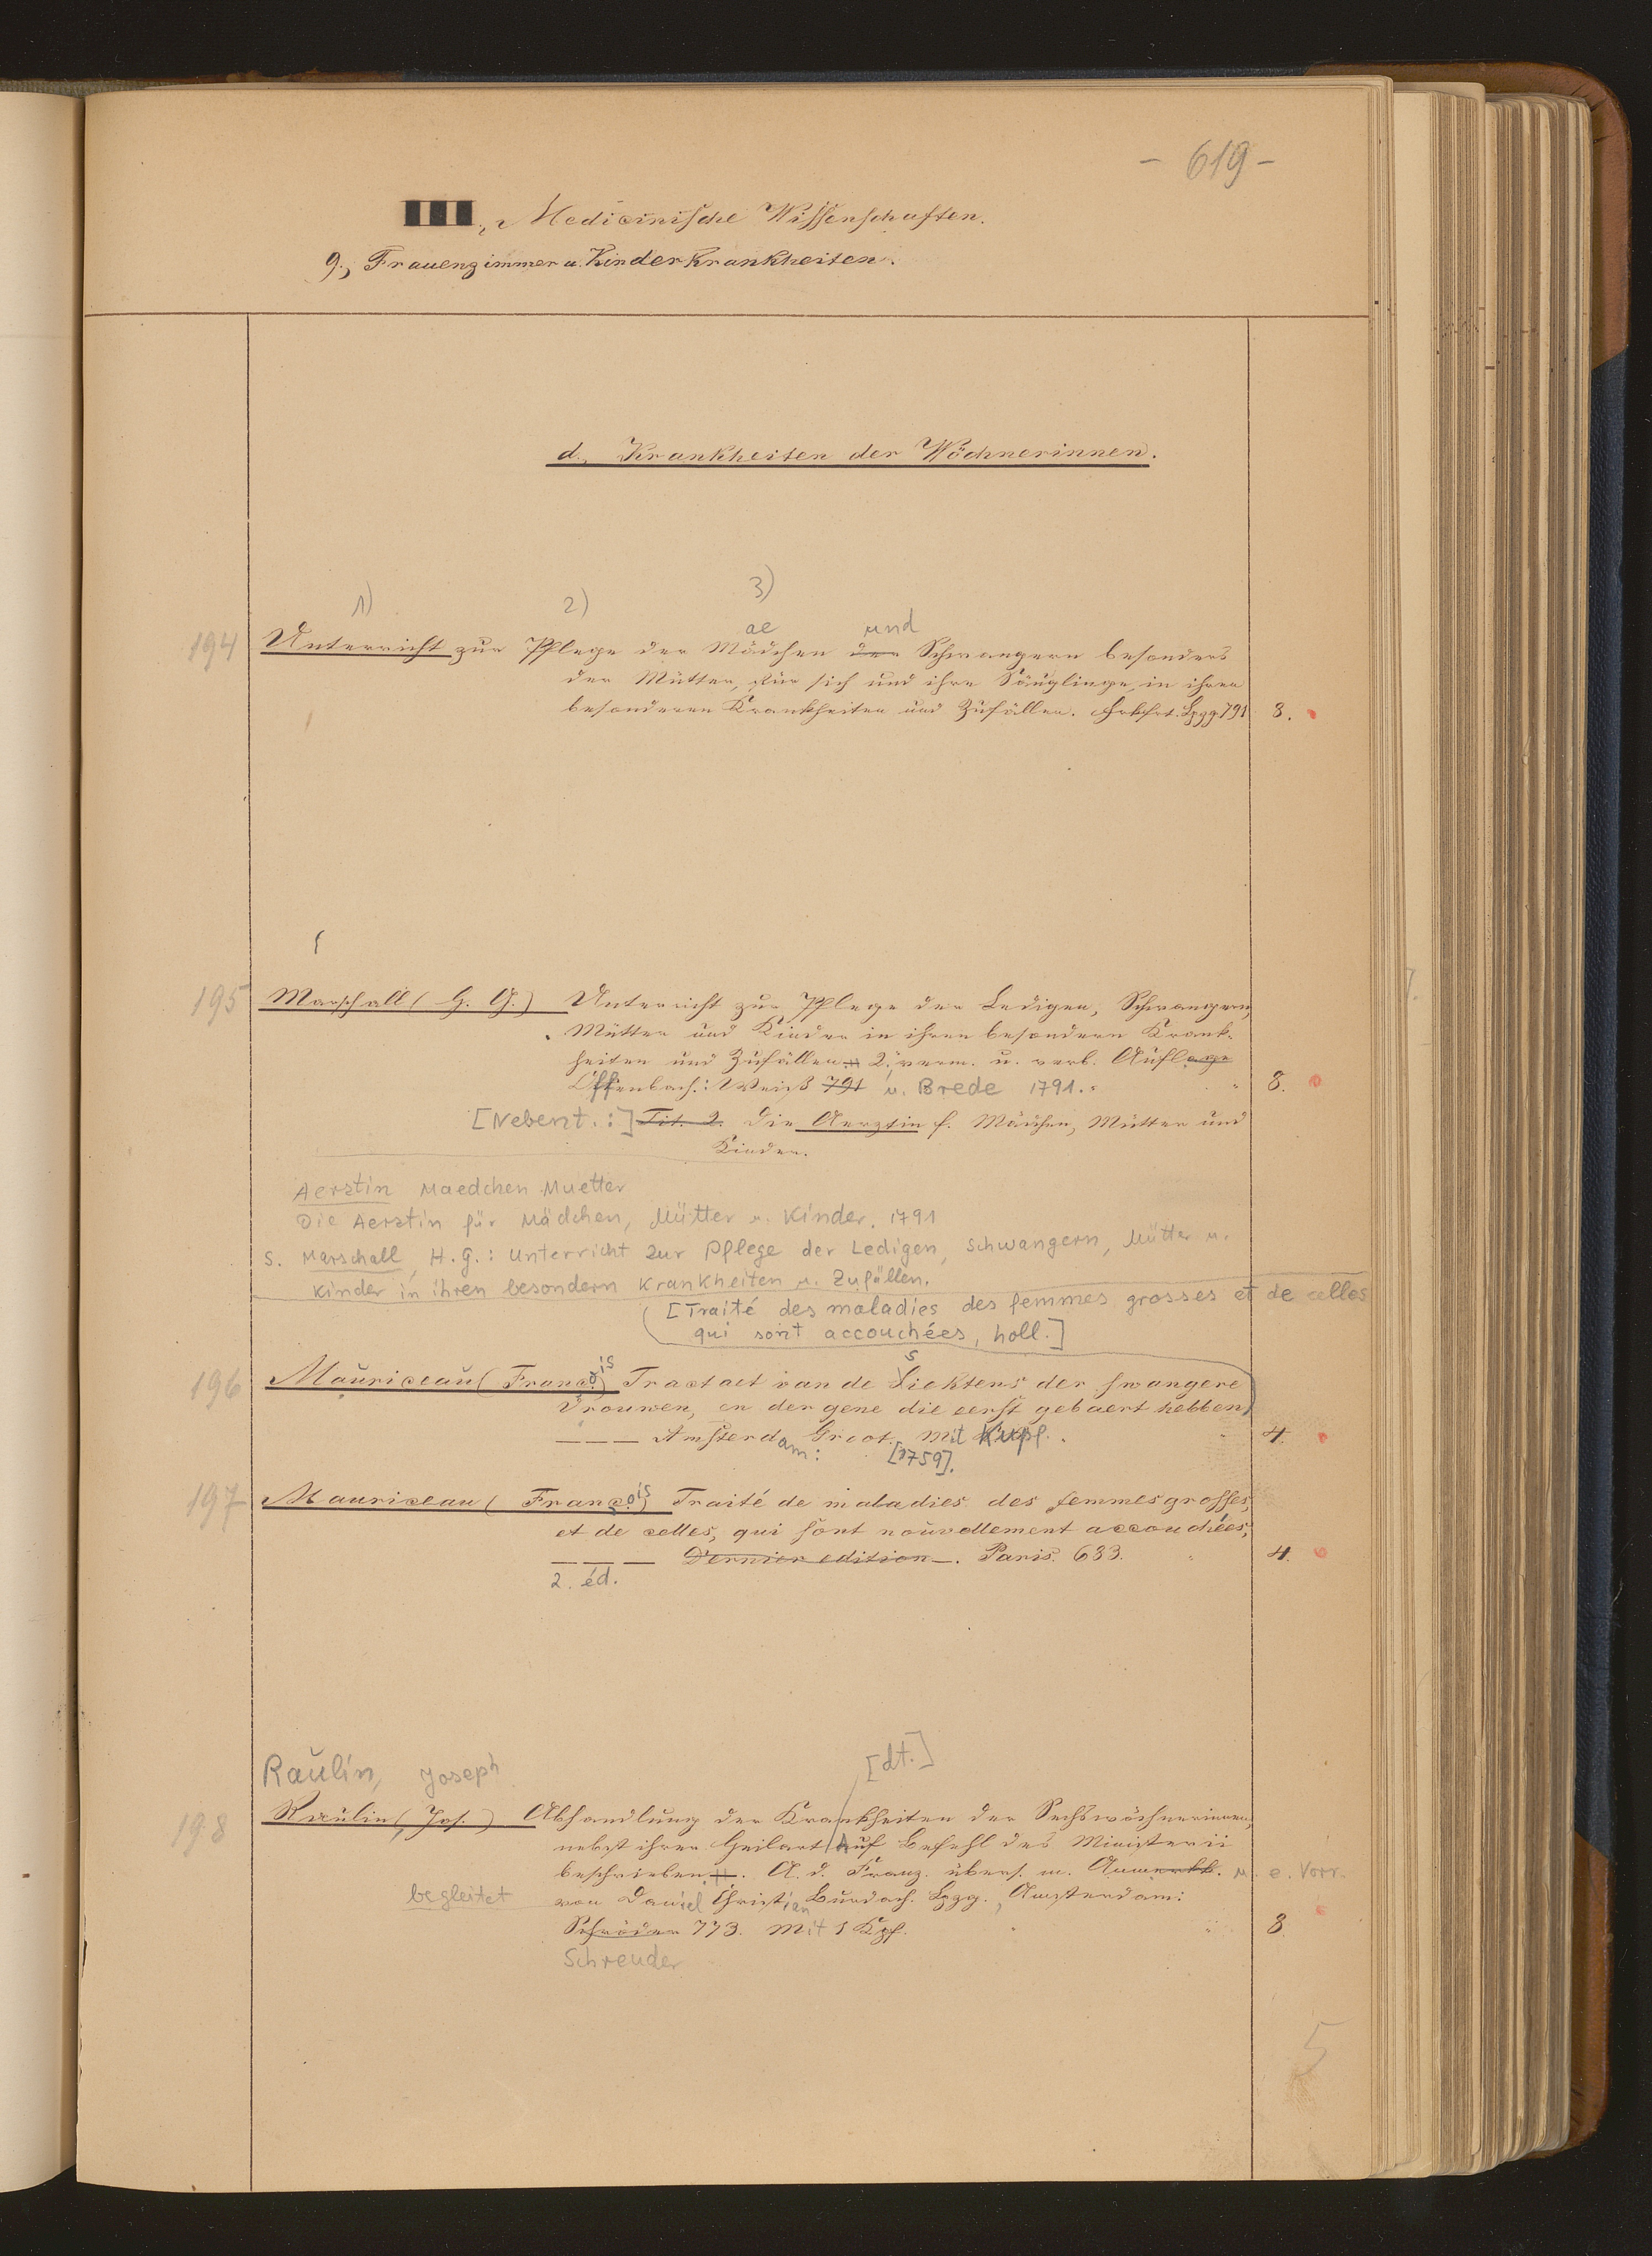 - 619 -
III., Medicinische Wissenschaften.
9., Frauenzimmer u. Kinderkrankheiten.
d., Krankheiten der Wöchnerinnen.
1) 2) 3)
ae und
194 Unterricht zur Pflege der Mädchen der Schwangern besonders
der Mütter, für sich und ihre Säuglinge, in ihren
besonderen Krankheiten und Zufällen. Frkfrt. Lpzg. 791 8.
195 Marschall (H. G.) Unterricht zur Pflege der Ledigen, Schwangern,
Mütter und Kinder in ihren besondern Krank-
heiten und Zufällen. 2. verm. u. verb. Auflage
Offenbach: Weiß 791 u. Brede 1791. 8.
[Nebent.:] Tit. 2. Die Aerztin f. Mädchen, Mütter und
Kinder.
Aerztin Maedchen Muetter
Die Aerztin für Mädchen, Mütter u. Kinder. 1791
s. Marschall, H. G.: Unterricht zur Pflege der Ledigen, Schwangern, Mütter u.
Kinder in ihren besondern Krankheiten u. Zufällen.
[Traité des maladies des femmes grosses et de celles
qui sont accouchées, holl.]
196 Mauriceau (François) Tractaet van de Siektens der swangere
Vrouwen, en der gene die eerst gebaert hebben,
——— Amsterdam: Groot. Mit Kupf. 4.
[1759].
197 Mauriceau (François) Traité de maladies des femmes grosses,
et de celles, qui sont nouvellement accouchées,
——— Dernier edition. Paris. 683. 4.
2. éd.
Raulin, Joseph [dt.]
198 Raulin, (Jos.) Abhandlung der Krankheiten der Sechswöchnerinnen,
nebst ihrer Heilart Auf Befehl des Ministerii
beschrieben. A. d. Franz. übers. m. Anmerkk. u. e. Vorr.
begleitet von Daniel Christian Burdach. Lpzg., Amsterdam:
Schröder 773. Mit 1 Kpf. 8
Schreuder
5